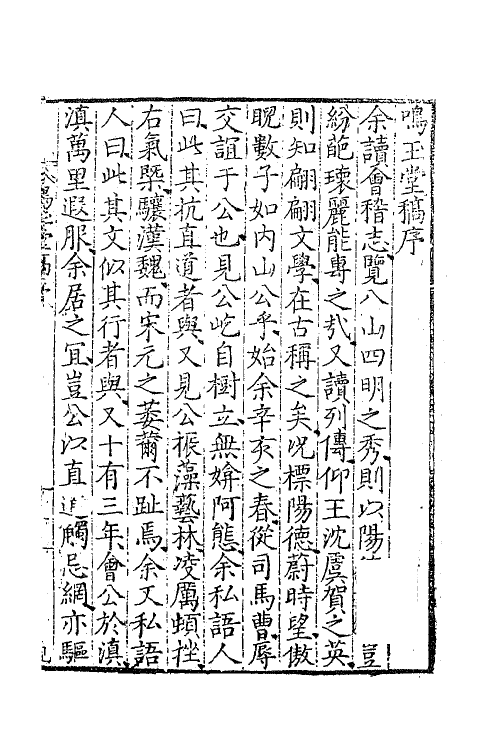 鳴玉堂稿序
余讀會稽志覽八山四明之秀則以陽 豈
紛葩瓌麗能專之㢤又讀列傳仰王沈虞賀之英
則知翩翩文學在古稱之矣況標陽德蔚時望傲
睨數子如内山公乎始余辛亥之春從司馬曹辱
交誼于公也見公屹自樹立無婥阿態余私語人
曰此其抗直道者與又見公振藻藝林凌厲頓挫
右氣槩驤漢魏而宋元之萎薾不趾焉余又私語
人曰此其文似其行者與又十有三年會公於滇
滇萬里遐服余居之冝豈公以直道觸忌網亦驅